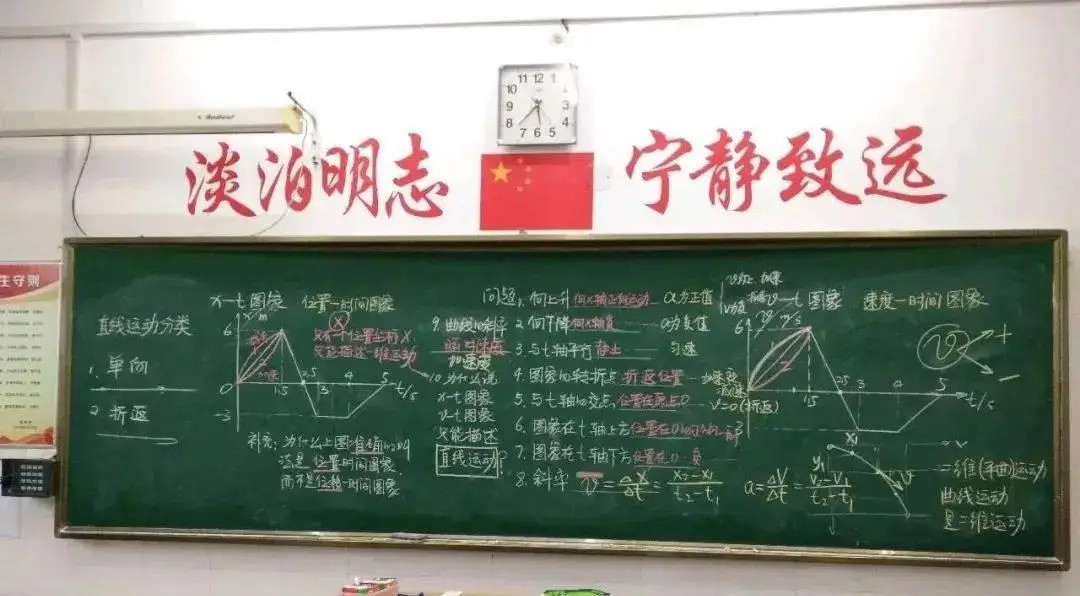 11 12 1
10
9 3
8 4
7 6 5
淡泊明志
宁静致远
生守则
直线运动分类
1. 单向
2. 折返
x-t图象 位置-时间图象
x/m
6
0
-3
1.5 2.5 3 4 5 t/s
只有一个位置坐标x
只能描述一维运动
补充:为什么上图准确的叫
法是位置时间图象
而不是位移-时间图象
9. 曲线的斜率
瞬时速度
加速度
10. 为什么说
x-t图象
v-t图象
只能描述
直线运动?
问题1. 向上升 向x轴正向运动 a为正值
2. 向下降 向x轴负 a为负值
3. 与t轴平行 静止 匀速
4. 图象的转折点 折返位置
5. 与t轴的交点 位置在原点0 v=0(折返)
6. 图象在t轴上方 位置在0
7. 图象在t轴下方 位置在0 负
8. 斜率 v=Δx/Δt=x₂-x₁/t₂-t₁ a=Δv/Δt=v₂-v₁/t₂-t₁
v-t图象 速度-时间图象
6
0
1.5 2.5 3 4 5 t/s
-3
v + -
y₁ x₁ v
二维(平面)运动
曲线运动
是二维运动